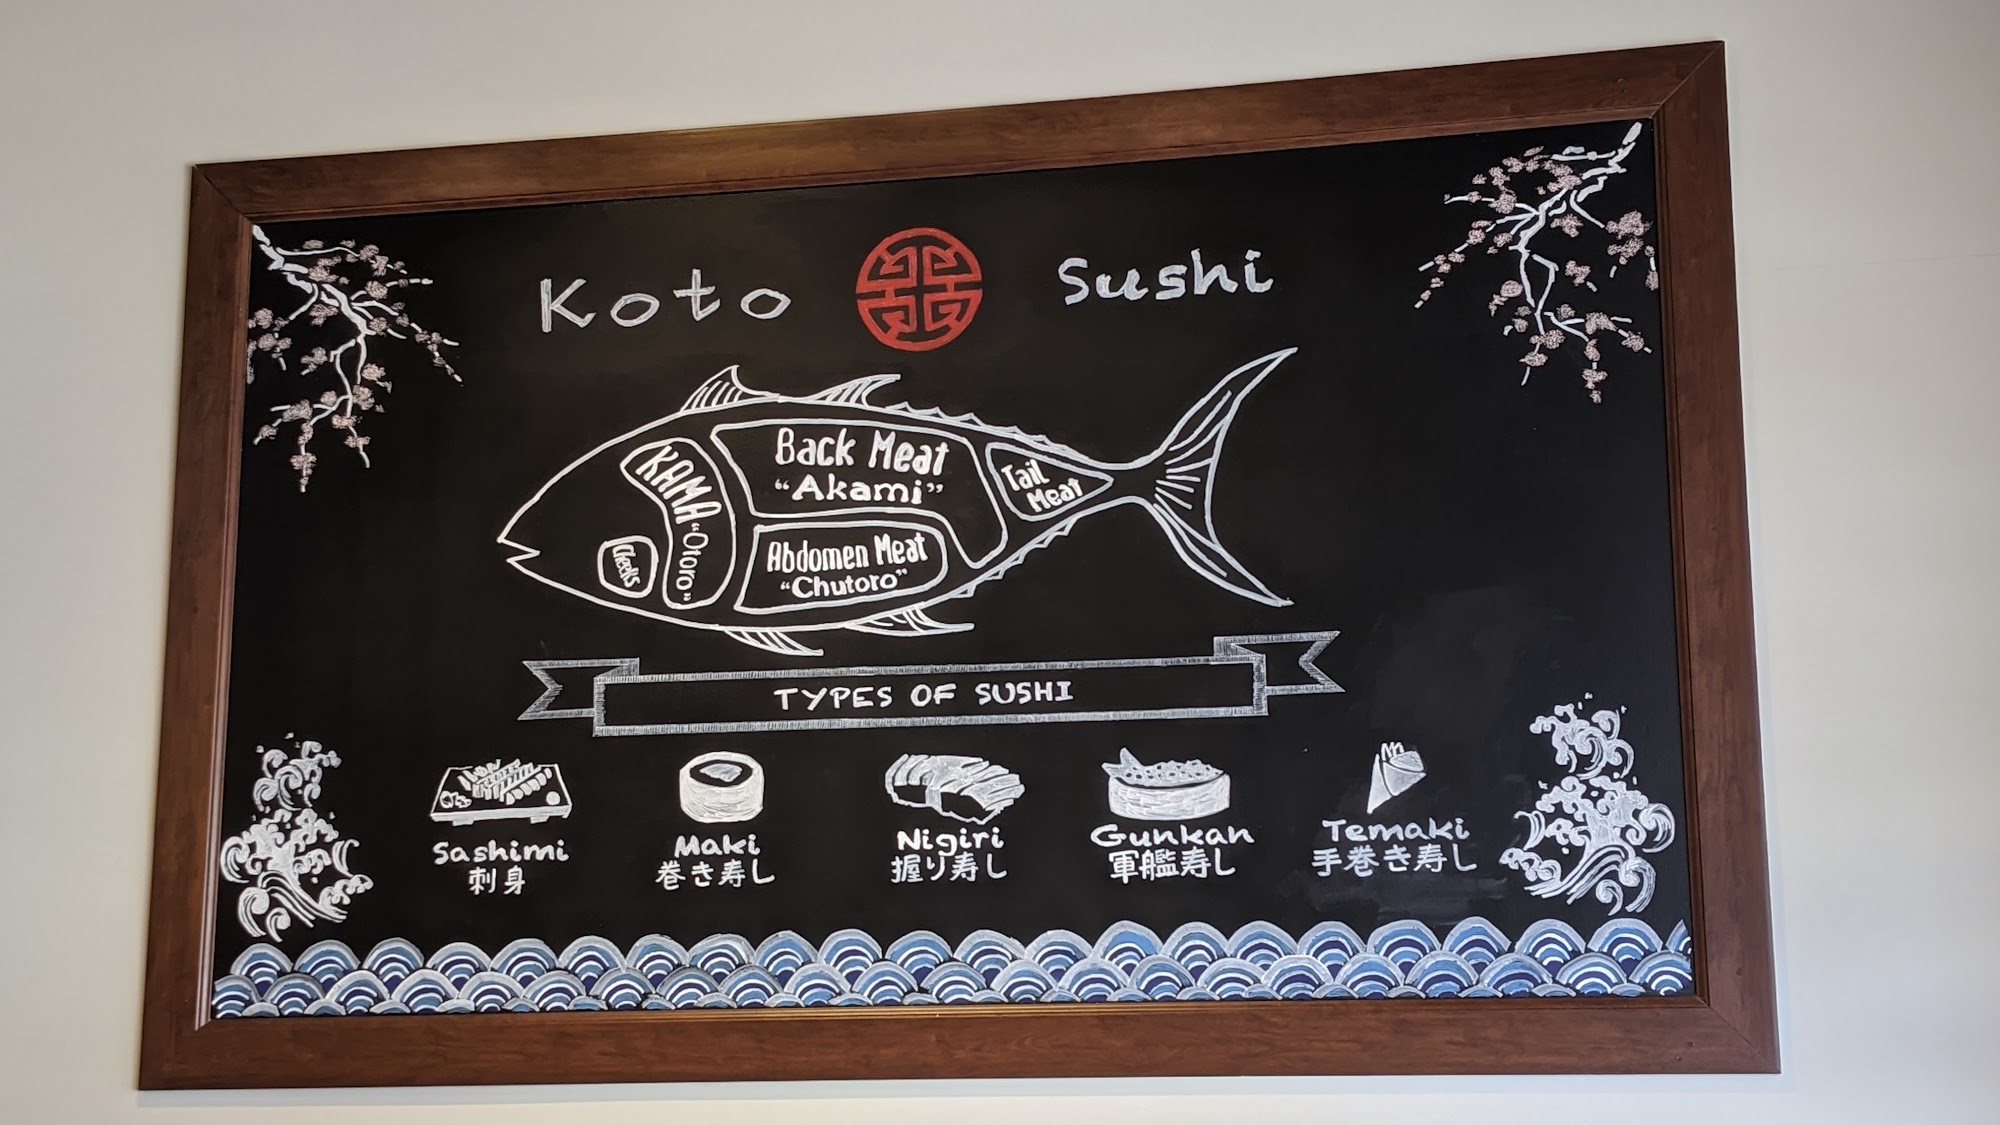 Koto Sushi
KAMA
"Otoro"
Cheeks
Back Meat
"Akami"
Abdomen Meat
"Chutoro"
Tail
Meat
TYPES OF SUSHI
Sashimi
刺身
Maki
巻き寿し
Nigiri
握り寿し
Gunkan
軍艦寿し
Temaki
手巻き寿し